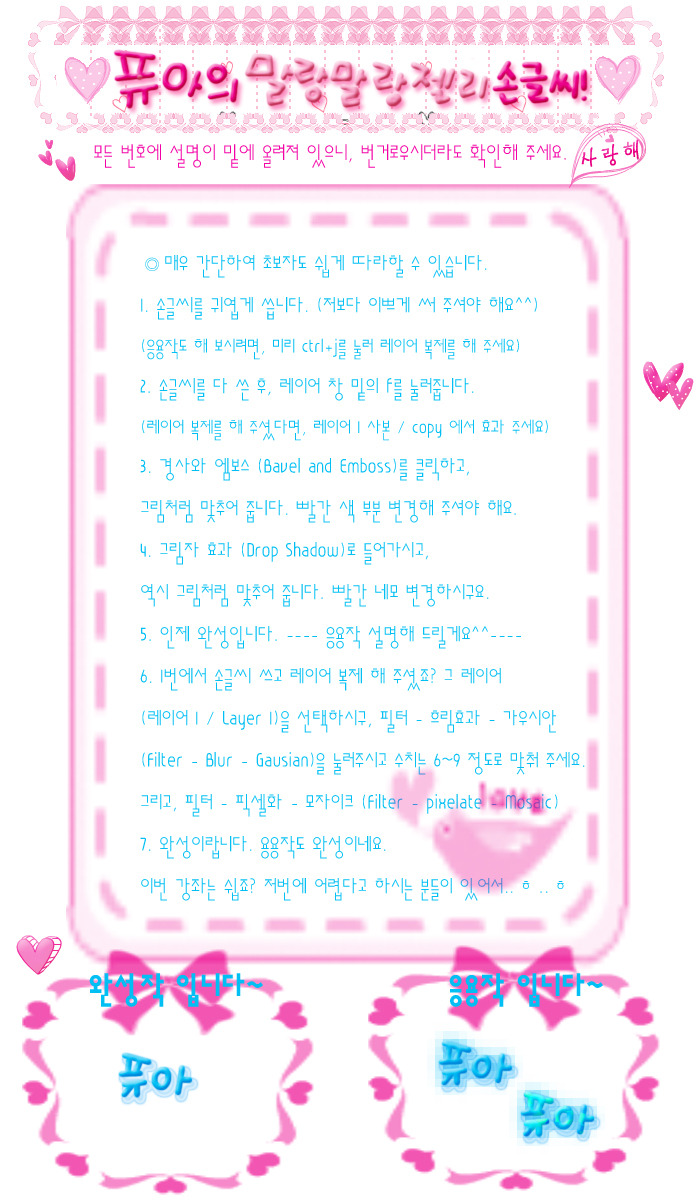 퓨아의 말랑말랑젤리손글씨!
모든 번호에 설명이 밑에 올려져 있으니, 번거로우시더라도 확인해 주세요.
사랑해
◎ 매우 간단하여 초보자도 쉽게 따라할 수 있습니다.
1. 손글씨를 귀엽게 씁니다. (저보다 이쁘게 써 주셔야 해요^^)
(응용작도 해 보시려면, 미리 ctrl+j를 눌러 레이어 복제를 해 주세요)
2. 손글씨를 다 쓴 후, 레이어 창 밑의 f를 눌러줍니다.
(레이어 복제를 해 주셨다면, 레이어 1 사본 / copy 에서 효과 주세요)
3. 경사와 엠보스 (Bavel and Emboss)를 클릭하고,
그림처럼 맞추어 줍니다. 빨간 색 부분 변경해 주셔야 해요.
4. 그림자 효과 (Drop Shadow)로 들어가시고,
역시 그림처럼 맞추어 줍니다. 빨간 네모 변경하시구요.
5. 인제 완성입니다. ---- 응용작 설명해 드릴게요^^----
6. 1번에서 손글씨 쓰고 레이어 복제 해 주셨죠? 그 레이어
(레이어 1 / Layer 1)을 선택하시구, 필터 - 흐림효과 - 가우시안
(Filter - Blur - Gausian)을 눌러주시고 수치는 6~9 정도로 맞춰 주세요.
그리고, 필터 - 픽셀화 - 모자이크 (Filter - pixelate - Mosaic)
love
7. 완성이랍니다. 응용작도 완성이네요.
이번 강좌는 쉽죠? 저번에 어렵다고 하시는 분들이 있어서.. ㅎ .. ㅎ
완성작 입니다~
응용작 입니다~
퓨아
퓨아
퓨아